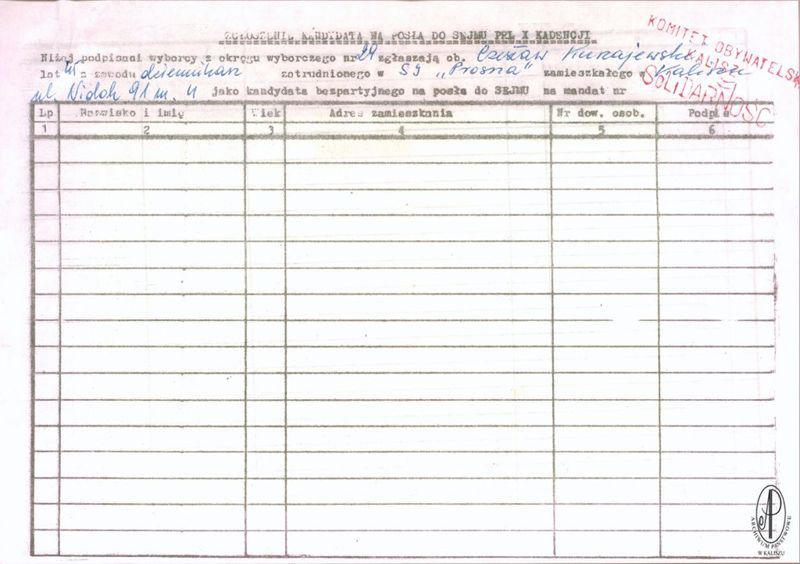 ZGŁOSZENIE KANDYDATA NA POSŁA DO SEJMU PRL X KADENCJI
Niżej podpisani wyborcy z okręgu wyborczego nr 29 zgłaszają ob. Czesław Kunajewski
lat z zawodu dziennikarz zatrudnionego w SI "Prosna" zamieszkałego w Kalisz
ul. Widok 91 m. 4 jako kandydata bezpartyjnego na posła do SEJMU na mandat nr
KOMITET OBYWATELSK
KALISZ
SOLIDARNOŚĆ
Lp Nazwisko i imię Wiek Adres zamieszkania Nr dow. osob. Podpis
1 2 3 4 5 6
AP
ARCHIWUM PAŃSTWOWE
W KALISZU